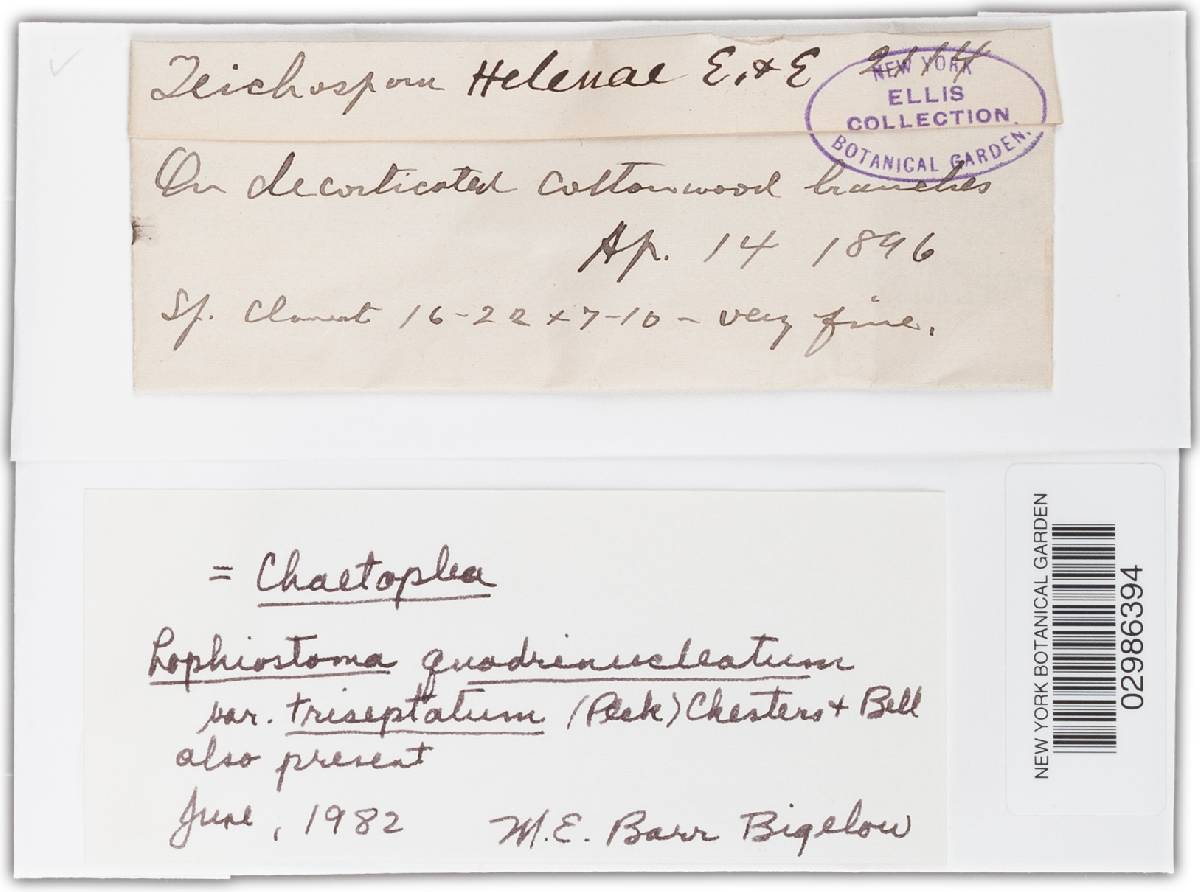 Teichospora Helenae E. & E
NEW YORK
ELLIS
COLLECTION.
BOTANICAL GARDEN.
On decorticated cottonwood branches
Ap. 14 1896
Sp. 16-22 x 7-10 - very fine.
= Chaetoplea
Lophiostoma quadrinucleatum
var. triseptatum (Peck) Chesters + Bell
also present
June, 1982 M.E. Barr Bigelow
NEW YORK BOTANICAL GARDEN
02986394